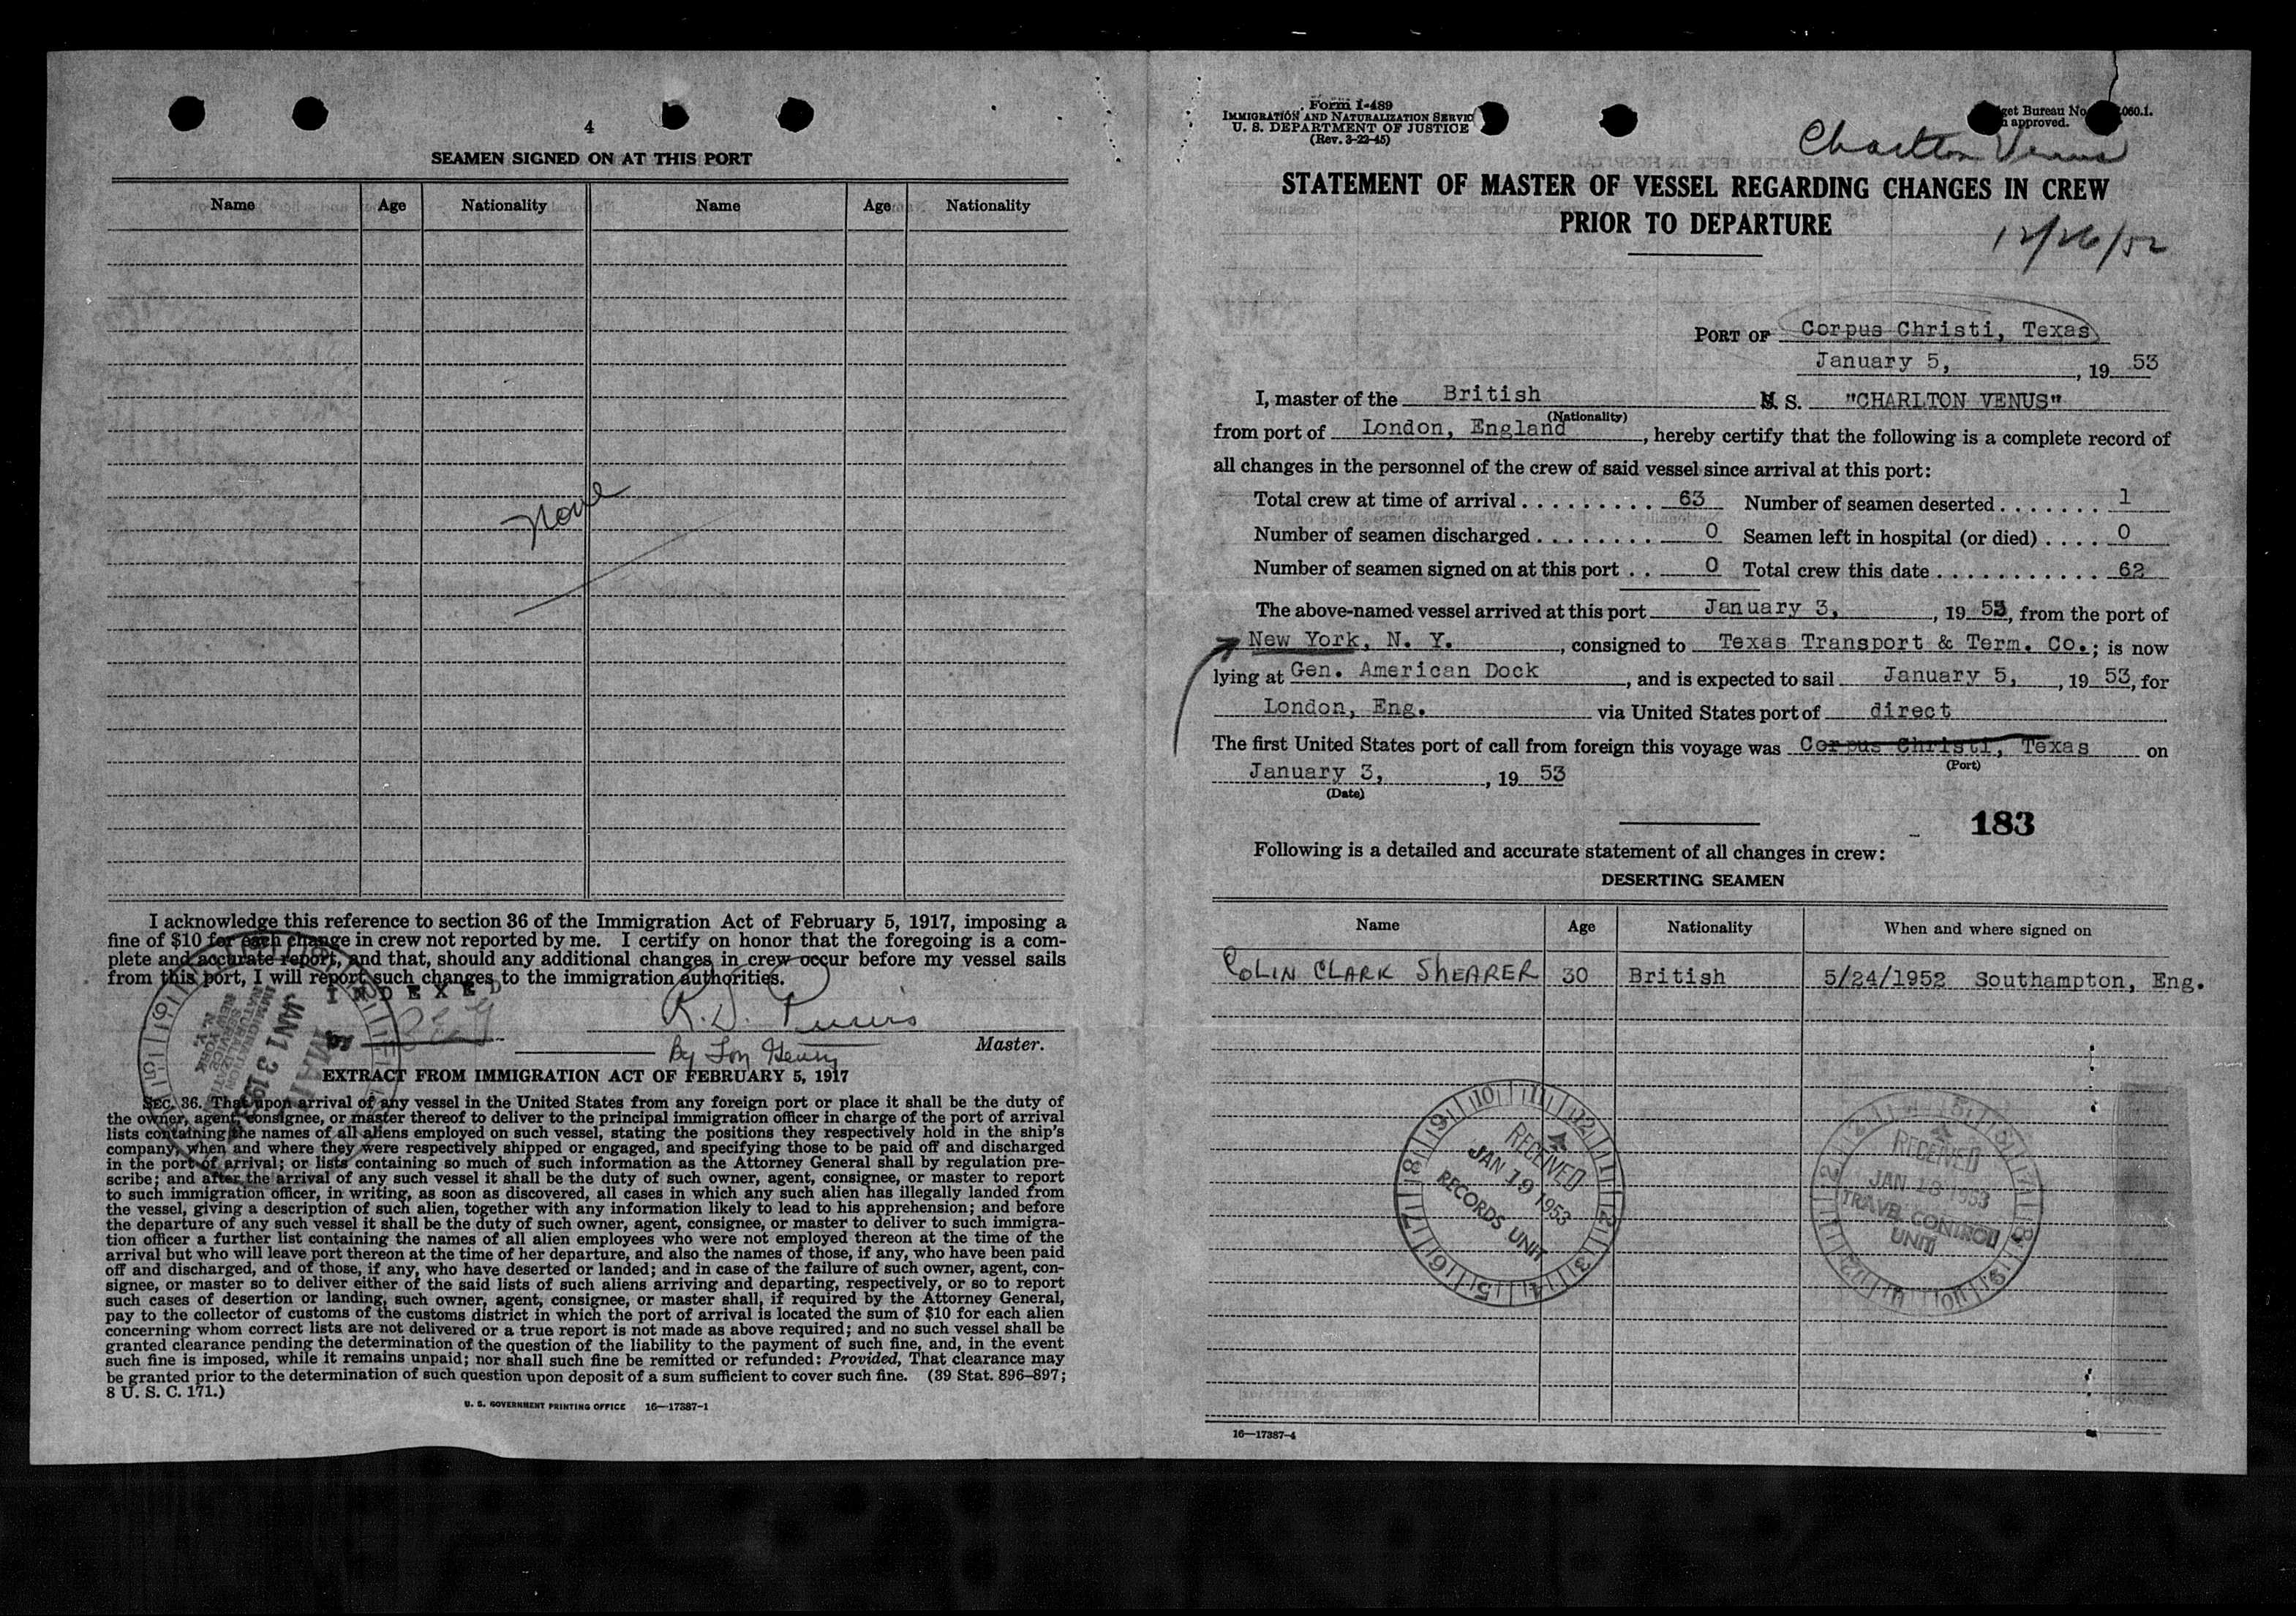 4
SEAMEN SIGNED ON AT THIS PORT
Name Age Nationality Name Age Nationality
None
I acknowledge this reference to section 36 of the Immigration Act of February 5, 1917, imposing a
fine of $10 for each change in crew not reported by me. I certify on honor that the foregoing is a com-
plete and accurate report, and that, should any additional changes in crew occur before my vessel sails
from this port, I will report such changes to the immigration authorities.
INDEXED
R. D.
Master.
By
JAN 13 19
IMMIGRATION
NEW YORK
N. Y.
EXTRACT FROM IMMIGRATION ACT OF FEBRUARY 5, 1917
SEC. 36. That upon arrival of any vessel in the United States from any foreign port or place it shall be the duty of
the owner, agent, consignee, or master thereof to deliver to the principal immigration officer in charge of the port of arrival
lists containing the names of all aliens employed on such vessel, stating the positions they respectively hold in the ship's
company, when and where they were respectively shipped or engaged, and specifying those to be paid off and discharged
in the port of arrival; or lists containing so much of such information as the Attorney General shall by regulation pre-
scribe; and after the arrival of any such vessel it shall be the duty of such owner, agent, consignee, or master to report
to such immigration officer, in writing, as soon as discovered, all cases in which any such alien has illegally landed from
the vessel, giving a description of such alien, together with any information likely to lead to his apprehension; and before
the departure of any such vessel it shall be the duty of such owner, agent, consignee, or master to deliver to such immigra-
tion officer a further list containing the names of all alien employees who were not employed thereon at the time of the
arrival but who will leave port thereon at the time of her departure, and also the names of those, if any, who have been paid
off and discharged, and of those, if any, who have deserted or landed; and in case of the failure of such owner, agent, con-
signee, or master so to deliver either of the said lists of such aliens arriving and departing, respectively, or so to report
such cases of desertion or landing, such owner, agent, consignee, or master shall, if required by the Attorney General,
pay to the collector of customs of the customs district in which the port of arrival is located the sum of $10 for each alien
concerning whom correct lists are not delivered or a true report is not made as above required; and no such vessel shall be
granted clearance pending the determination of the question of the liability to the payment of such fine, and, in the event
such fine is imposed, while it remains unpaid; nor shall such fine be remitted or refunded: Provided, That clearance may
be granted prior to the determination of such question upon deposit of a sum sufficient to cover such fine. (39 Stat. 896–897;
8 U. S. C. 171.)
U. S. GOVERNMENT PRINTING OFFICE 16—17387-1
Form I-489
IMMIGRATION AND NATURALIZATION SERVIC
U. S. DEPARTMENT OF JUSTICE
(Rev. 3-22-45)
get Bureau No. 060.1.
approved.
Charlton Venus
STATEMENT OF MASTER OF VESSEL REGARDING CHANGES IN CREW
PRIOR TO DEPARTURE
12/26/52
PORT OF Corpus Christi, Texas
January 5, , 19 53
I, master of the British M. S. "CHARLTON VENUS"
(Nationality)
from port of London, England , hereby certify that the following is a complete record of
all changes in the personnel of the crew of said vessel since arrival at this port:
Total crew at time of arrival . . . . . . . . . 63 Number of seamen deserted . . . . . . . 1
Number of seamen discharged . . . . . . . . 0 Seamen left in hospital (or died) . . . . 0
Number of seamen signed on at this port . . 0 Total crew this date . . . . . . . . . . . 62
The above-named vessel arrived at this port January 3, , 19 53, from the port of
New York, N. Y. , consigned to Texas Transport & Term. Co.; is now
lying at Gen. American Dock , and is expected to sail January 5, , 19 53, for
London, Eng. via United States port of direct
The first United States port of call from foreign this voyage was Corpus Christi, Texas on
(Port)
January 3, , 19 53
(Date)
183
Following is a detailed and accurate statement of all changes in crew:
DESERTING SEAMEN
Name Age Nationality When and where signed on
COLIN CLARK SHEARER 30 British 5/24/1952 Southampton, Eng.
RECEIVED
JAN 19 1953
RECORDS UNIT
RECEIVED
JAN 18 1953
TRAVEL CONTROL
UNIT
16—17387-4